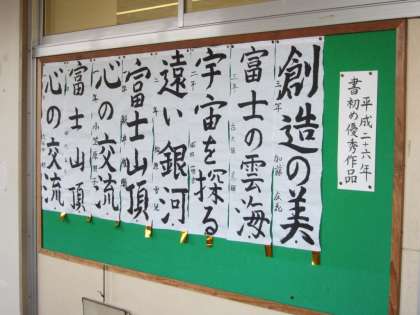 平成二十六年
書初め優秀作品
創造の美
三年 加藤
富士の雲海
三年
宇宙を探る
二年
遠い銀河
富士山頂
心の交流
富士山頂
心の交流